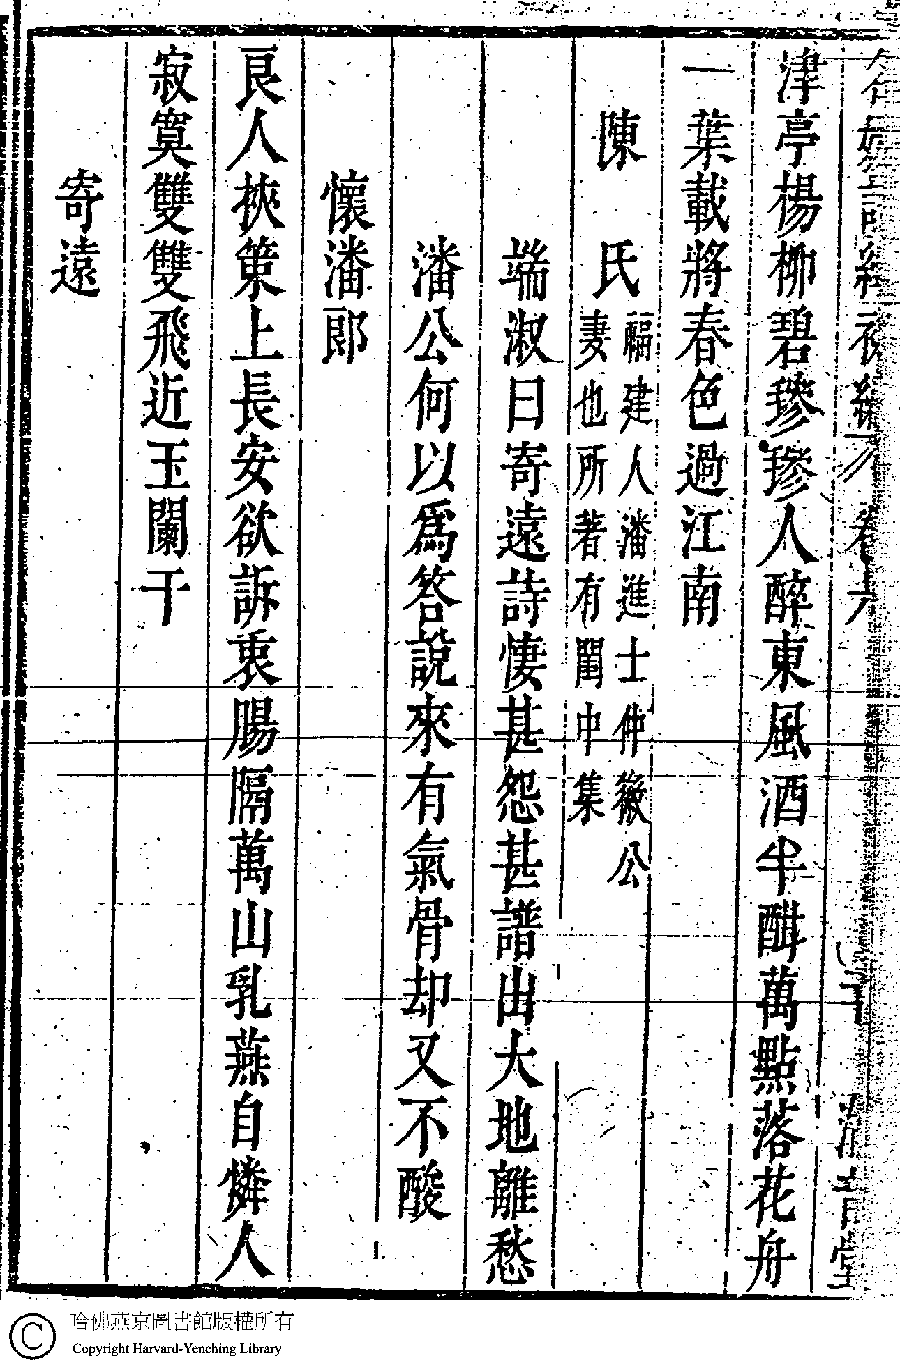 名媛詩緯初編 卷六
津亭楊柳碧毿毿人醉東風酒半酣萬點落花舟
一葉載將春色過江南
陳氏
福建人潘進士仲徽公
妻也所著有閨中集
端淑曰寄遠詩悽甚怨甚譜出大地離愁
潘公何以爲答說來有氣骨却又不酸
懷潘郎
良人挾策上長安欲訴衷腸隔萬山乳燕自憐人
寂寞雙雙飛近玉闌干
寄遠
哈佛燕京圖書館版權所有
© Copyright Harvard-Yenching Library